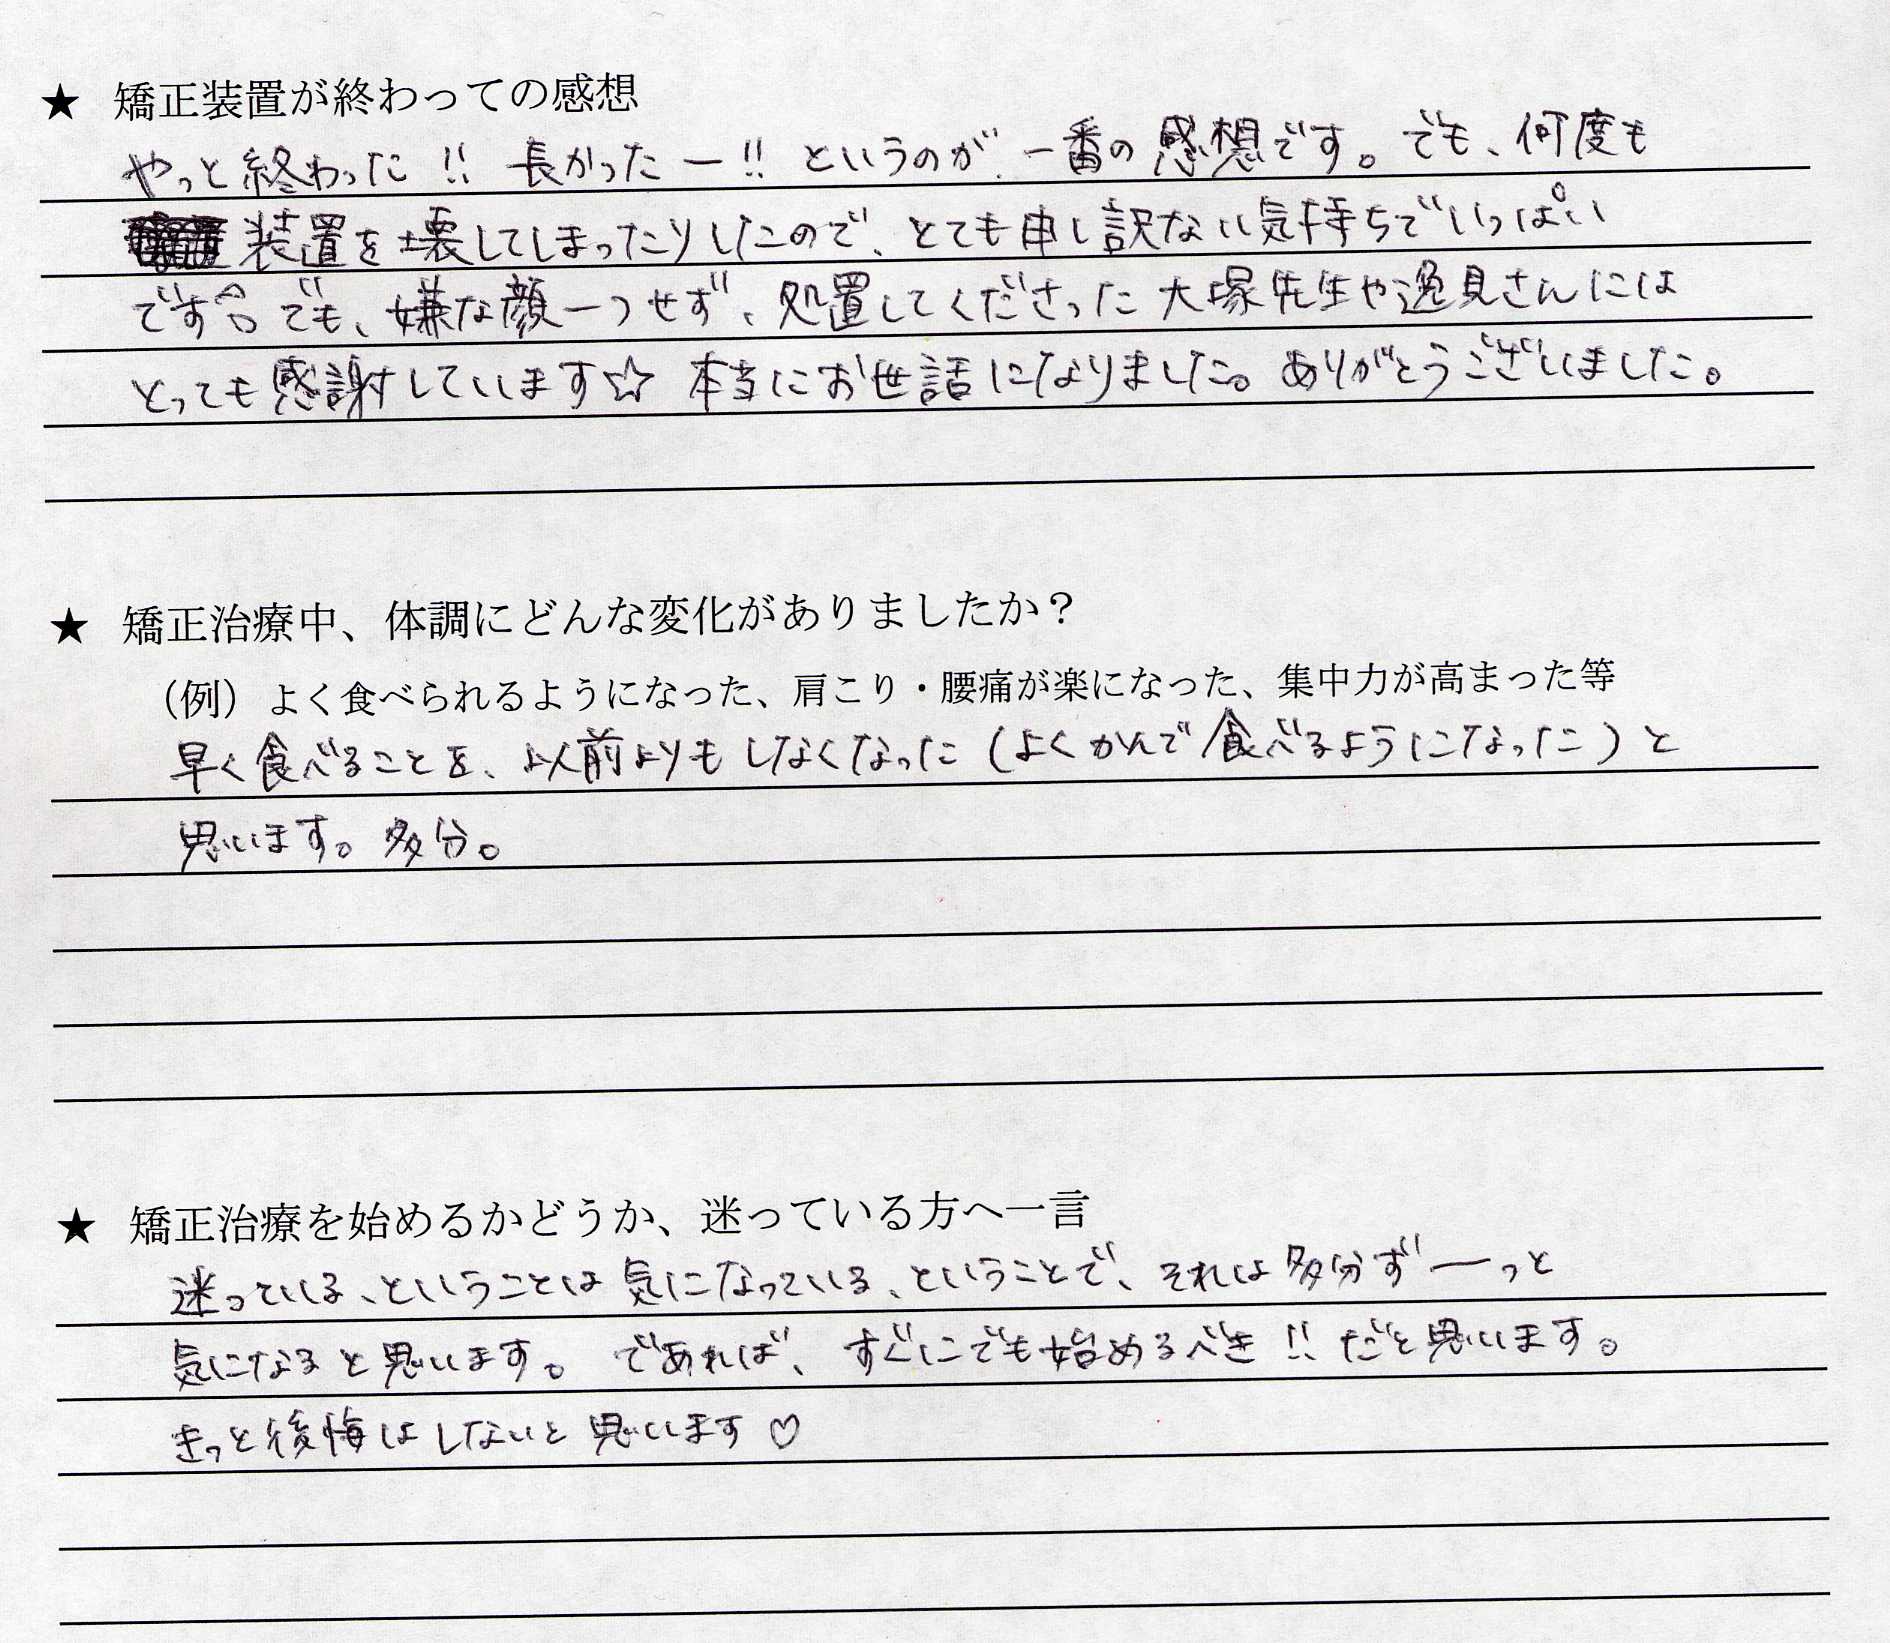 ★ 矯正装置が終わっての感想
やっと終わった!! 長かったー!! というのが、一番の感想です。でも、何度も
装置を壊してしまったりしたので、とても申し訳ない気持ちでいっぱい
です。でも、嫌な顔一つせず、処置してくださった大塚先生や逸見さんには
とっても感謝しています☆ 本当にお世話になりました。ありがとうございました。
★ 矯正治療中、体調にどんな変化がありましたか？
（例）よく食べられるようになった、肩こり・腰痛が楽になった、集中力が高まった等
早く食べることを、以前よりもしなくなった(よくかんで食べるようになった)と
思います。多分。
★ 矯正治療を始めるかどうか、迷っている方へ一言
迷っている、ということは気になっている、ということで、それは多分ずーっと
気になると思います。であれば、すぐにでも始めるべき!! だと思います。
きっと後悔はしないと思います♡